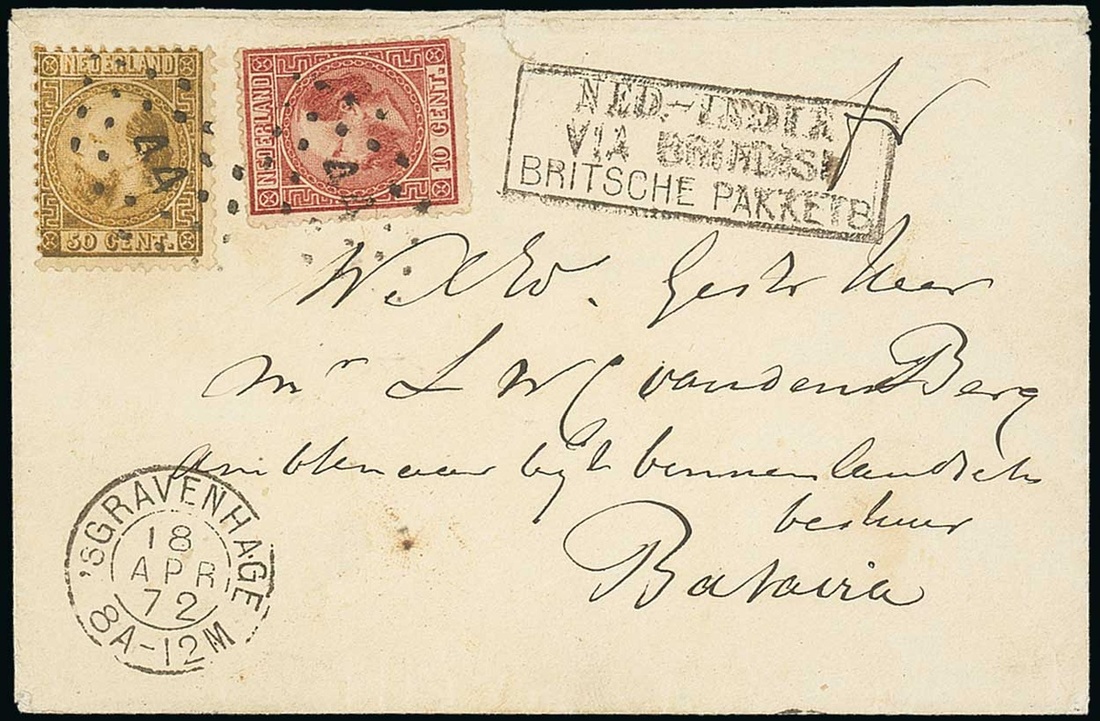 NEDERLAND
50 CENT.
44
NEDERLAND
10 CENT.
NED.-INDIA
VIA BRINDISI
BRITSCHE PAKKETB
WelEd. Gestr Heer
Mr L W C van den Berg
ambtenaar by't binnenlandsch
bestuur
Batavia
'SGRAVENHAGE
18
APR
72
8A-12M